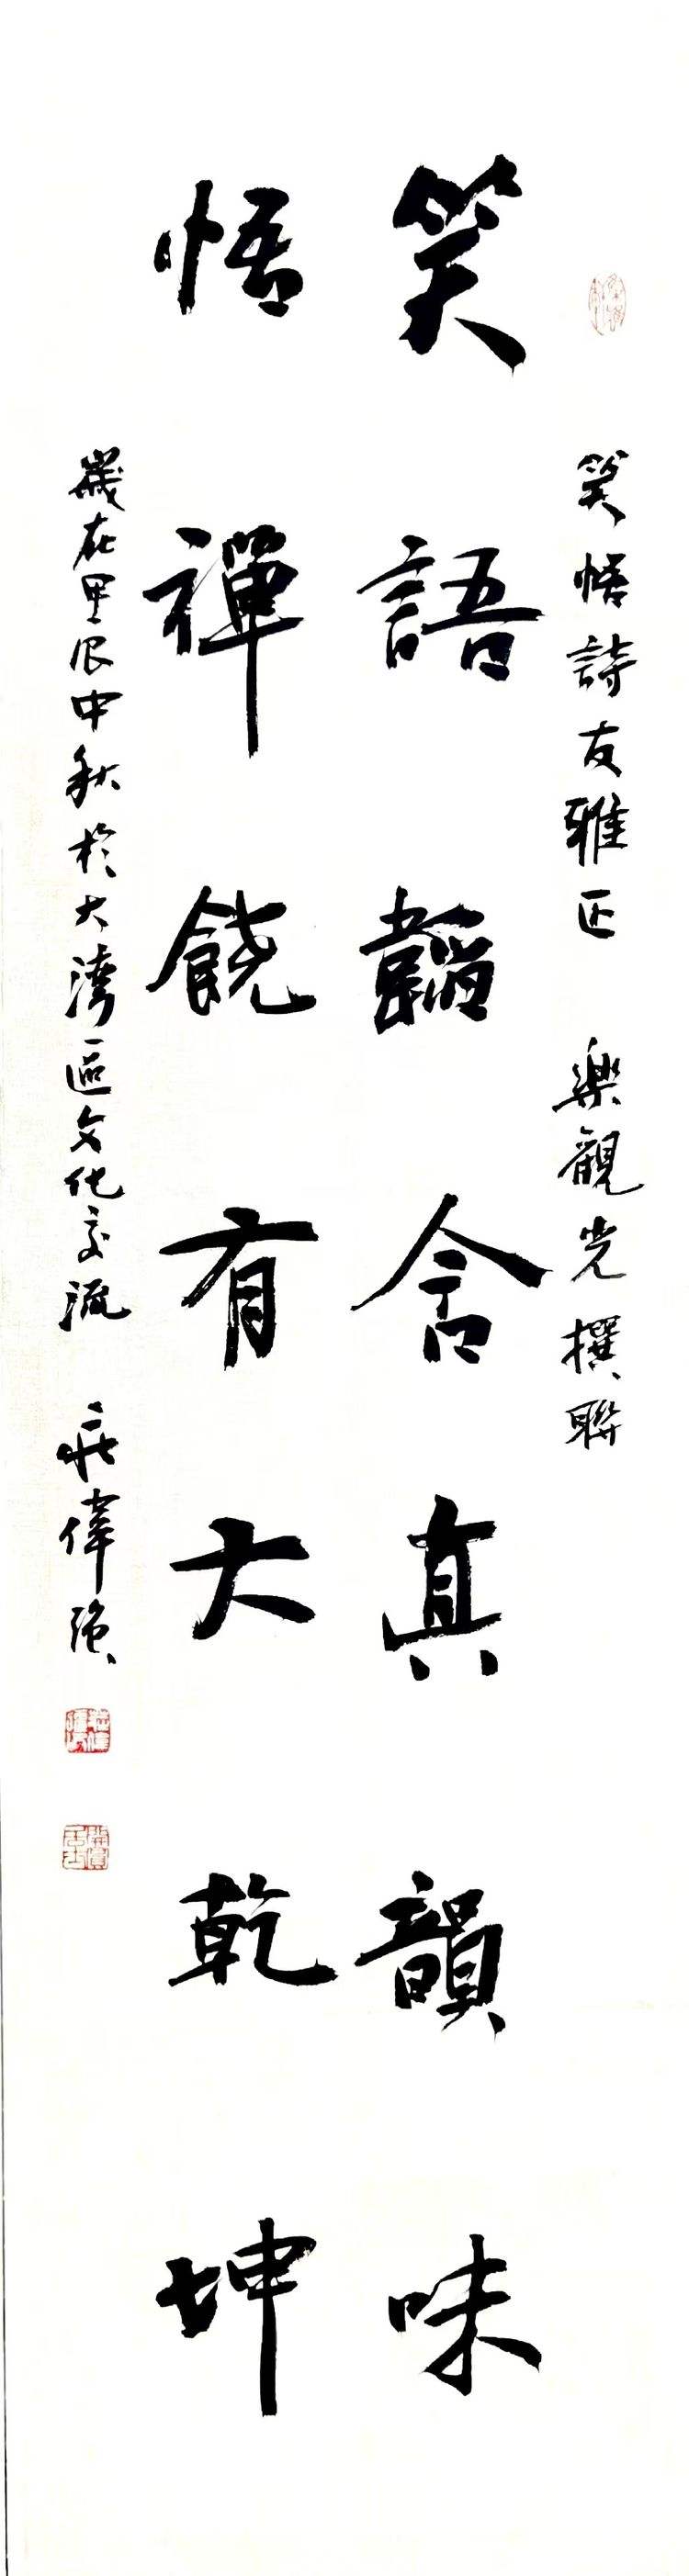 笑悟詩友雅正 樂觀光撰聯
笑語韜含真韻味
悟禪饒有大乾坤
歲在甲辰中秋於大灣區文化交流 莊偉强